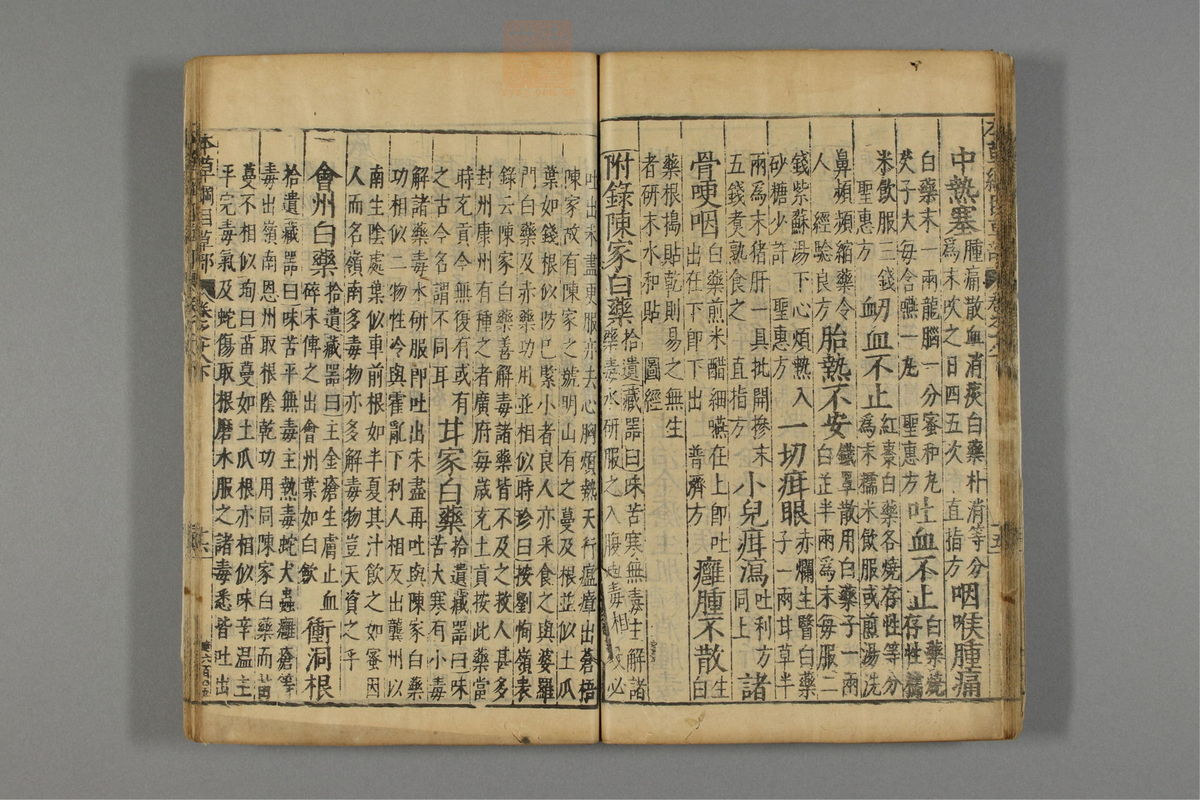 中熱塞爲末吹之日四五次直指方咽喉腫痛
腫痛散血消痰白藥朴消等分
白藥末一兩龍腦一分蜜和丸吐血不止白藥燒
芡子大每含嚥一丸聖惠方存性糯
米飲服三錢衂血不止紅棗白藥各燒存性等分
聖惠方爲末糯米飲服或煎湯洗
鼻頻頻縮藥令胎熱不安鐵罩散用白藥子一兩
人經驗良方白芷半兩爲末每服二
錢紫蘇湯下心煩熱入一切疳眼赤爛生瞖白藥
砂糖少許聖惠方子一兩甘草半
兩爲末猪肝一具批開摻末小兒疳瀉吐利方諸
五錢煑熟食之直指方同上
骨哽咽白藥煎米醋細嚥在上卽吐癰腫不散生
出在下卽下出普濟方白
藥根搗貼乾則易之無生
者研末水和貼圖經
附錄陳家白藥拾遺藏器曰味苦寒無毒主解諸
藥毒水研服之入腹與毒相攻必
吐出未盡更服亦去心胸煩熱天行瘟瘴出蒼梧
陳家故有陳家之號明山有之蔓及根並似土瓜
葉如錢根似防巳緊小者良人亦采食之與婆羅
門白藥及赤藥功用並相似時珍曰按劉恂嶺表
錄云陳家白藥善解毒諸藥皆不及之救人甚多
封州康州有種之者廣府每歲充土貢按此藥當
時充貢今無復有或有甘家白藥拾遺藏器曰味
之古今名謂不同耳苦大寒有小毒
解諸藥毒水研服卽吐出未盡再吐與陳家白藥
功相似二物性冷與霍亂下利人相反出龔州以
南生陰處葉似車前根如半夏其汁飲之如蜜因
人而名嶺南多毒物亦多解毒物豈天資之乎
會州白藥拾遺藏器曰主金瘡生膚止血衝洞根
碎末傅之出會州葉如白歛
拾遺藏器曰味苦平無毒主熱毒蛇犬蟲癰瘡等
毒出嶺南恩州取根陰乾功用同陳家白藥而苗
蔓不相似珣曰苗蔓如土瓜根亦相似味辛溫主
平完毒氣及蛇傷取根磨水服之諸毒悉皆吐出
本草綱目草部